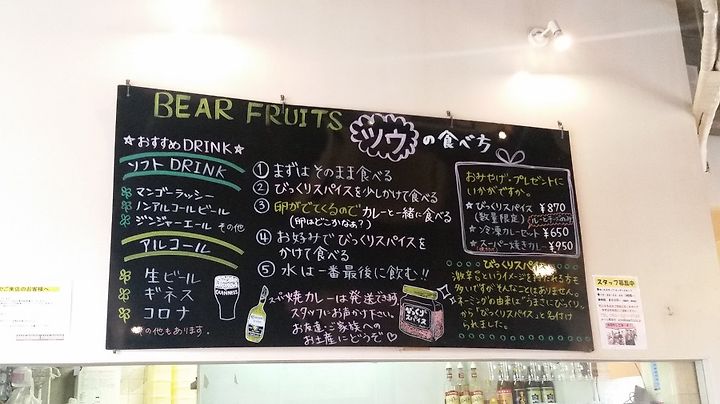 BEAR FRUITS
ツウの食べ方
☆おすすめDRINK☆
ソフトDRINK
マンゴーラッシー
ノンアルコールビール
ジンジャーエール その他
アルコール
生ビール
ギネス
コロナ
の他もあります。
GUINNESS
①まずはそのまま食べる
②びっくりスパイスを少しかけて食べる
③卵がでてくるのでカレーと一緒に食べる
(卵はどこかなぁ?)
④お好みでびっくりスパイスを
かけて食べる
⑤水は一番最後に飲む!!
スーパー焼カレーは発送できます。
スタッフにお声かけ下さい。
お友達・ご家族への
お土産にどうぞ♡
びっくり
スパイス
おみやげ・プレゼントに
いかがですか。
★びっくりスパイス ¥870
(数量限定)
★冷凍カレーセット ¥650
★スーパー焼きカレー ¥950
びっくりスパイス
激辛というイメージを
多いですがそんなことはありません。
ネーミングの由来は"うまさにびっくり"
から「びっくりスパイス」と名付け
られました。
ご来店のお客様へ
スタッフ募集中